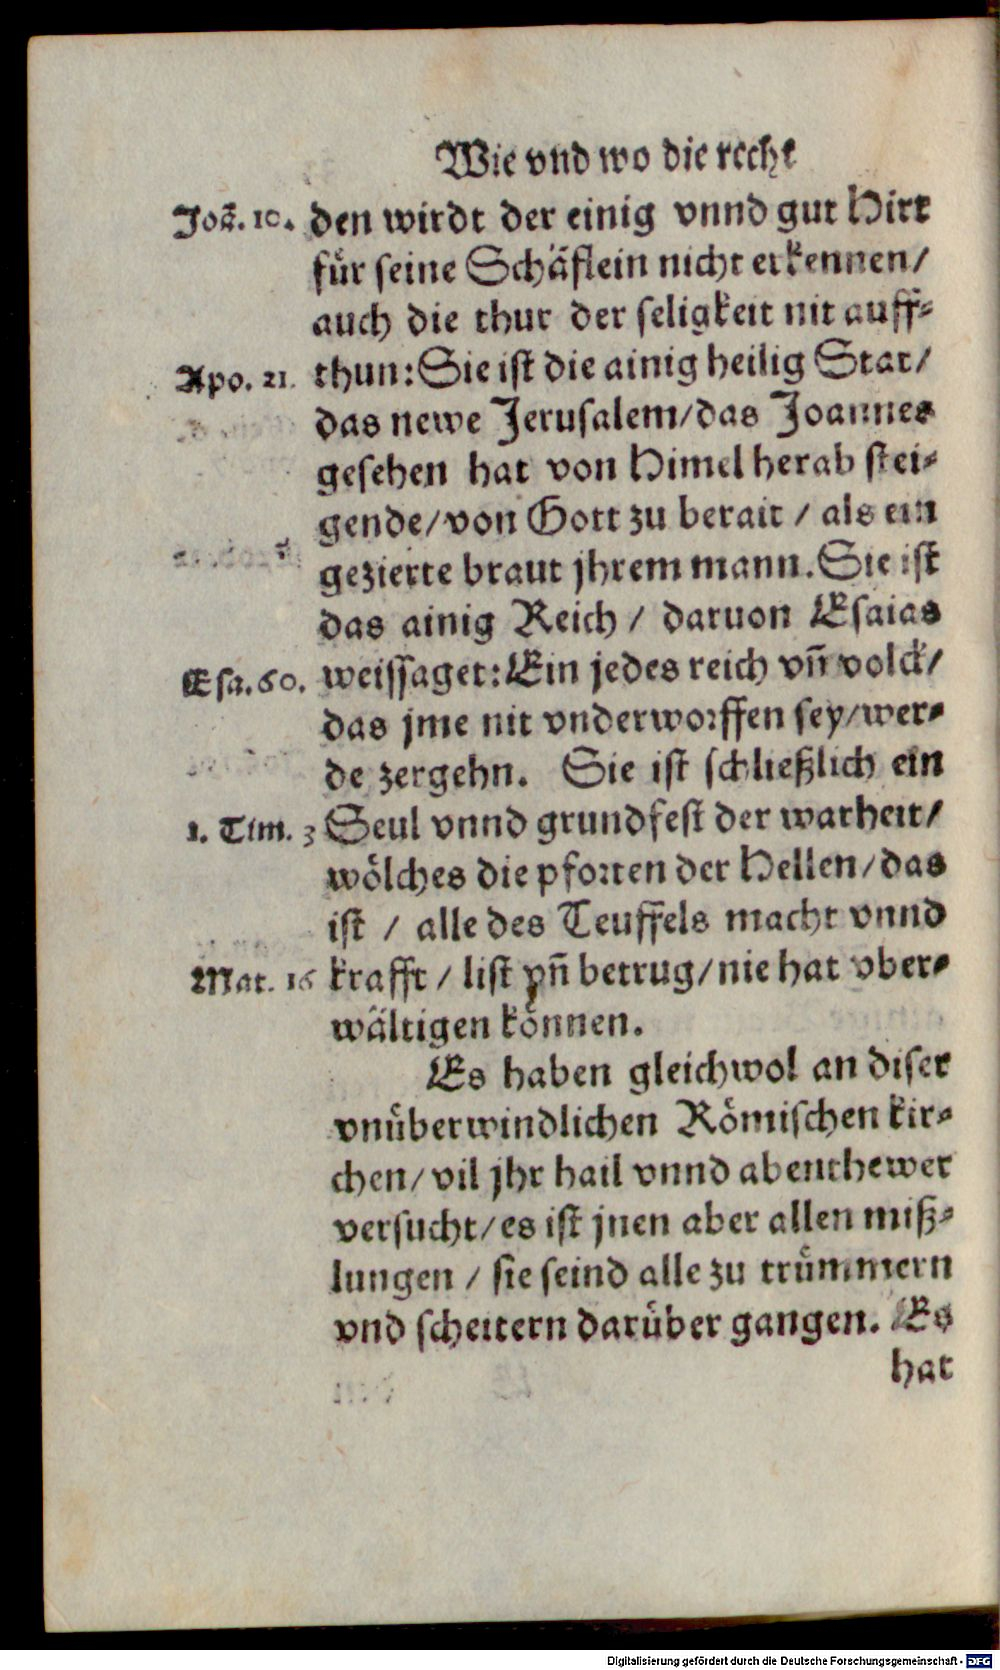 Wie vnd wo die recht
Joā. 10. den wirdt der einig vnnd gut Hirt
für seine Schäflein nicht erkennen/
auch die thur der seligkeit nit auff-
Apo. 21. thun: Sie ist die ainig heilig Stat/
das newe Jerusalem/das Joannes
gesehen hat von Himel herab stei-
gende/von Gott zu berait / als ein
gezierte braut jhrem mann. Sie ist
das ainig Reich / daruon Esaias
Esa. 60. weissaget: Ein jedes reich vñ volck/
das jme nit vnderworffen sey/wer-
de zergehn. Sie ist schließlich ein
1. Tim. 3 Seul vnnd grundfest der warheit/
wölches die pforten der Hellen/das
ist / alle des Teuffels macht vnnd
Mat. 16 krafft / list vñ betrug/nie hat vber-
wältigen können.
Es haben gleichwol an diser
vnüberwindlichen Römischen kir-
chen/vil jhr hail vnnd abenthewer
versucht/es ist jnen aber allen miß-
lungen / sie seind alle zu trümmern
vnd scheitern darüber gangen. Es
hat
Digitalisierung gefördert durch die Deutsche Forschungsgemeinschaft - DFG